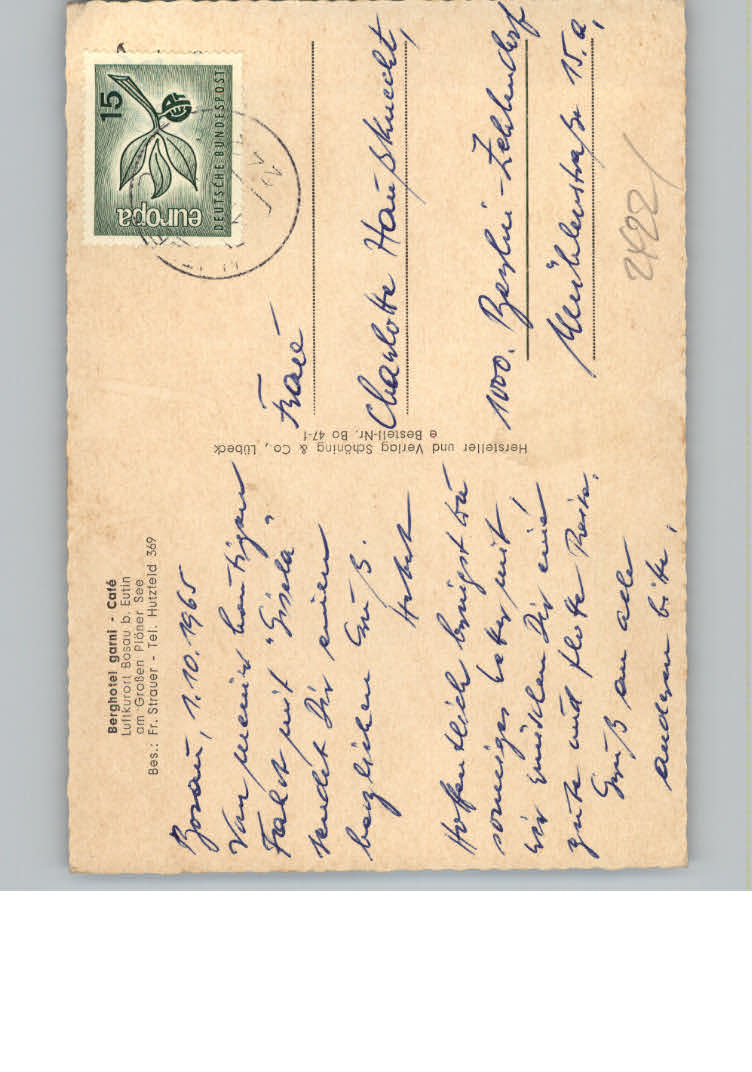 Berghotel garni - Café
Luftkurort Bosau b. Eutin
am Großen Plöner See
Bes.: Fr. Strauer - Tel. Hutzfeld 369
Bosau, 1.10.1965
Von meiner heutigen
Fahrt mit "Gisela"
sendet Dir einen
herzlichen Gruß.
Hoffentlich bringst Du
sonniges Wetter mit
wir wünschen Dir eine
gute und flotte Reise.
Gruß an alle
anderen bitte,
Hersteller und Verlag Schöning & Co., Lübeck
e Bestell-Nr. Bo 47-1
15
europa
DEUTSCHE BUNDESPOST
Frau
Charlotte Haußknecht,
1000. Berlin-Zehlendorf
Mühlenstraße 15.a,